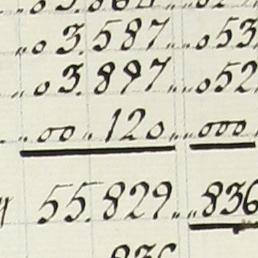 „o 3.587„ „o53
„o 3.897„ „o52
„oo„ 120„ „ooo
55.829„ „836